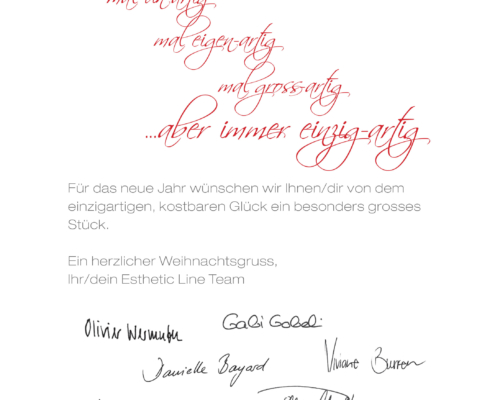 mal
mal eigen-artig
mal gross-artig
...aber immer einzig-artig
Für das neue Jahr wünschen wir Ihnen/dir von dem
einzigartigen, kostbaren Glück ein besonders grosses
Stück.
Ein herzlicher Weihnachtsgruss,
Ihr/dein Esthetic Line Team
Olivier
Gabi
Danielle Bayard
Viviane